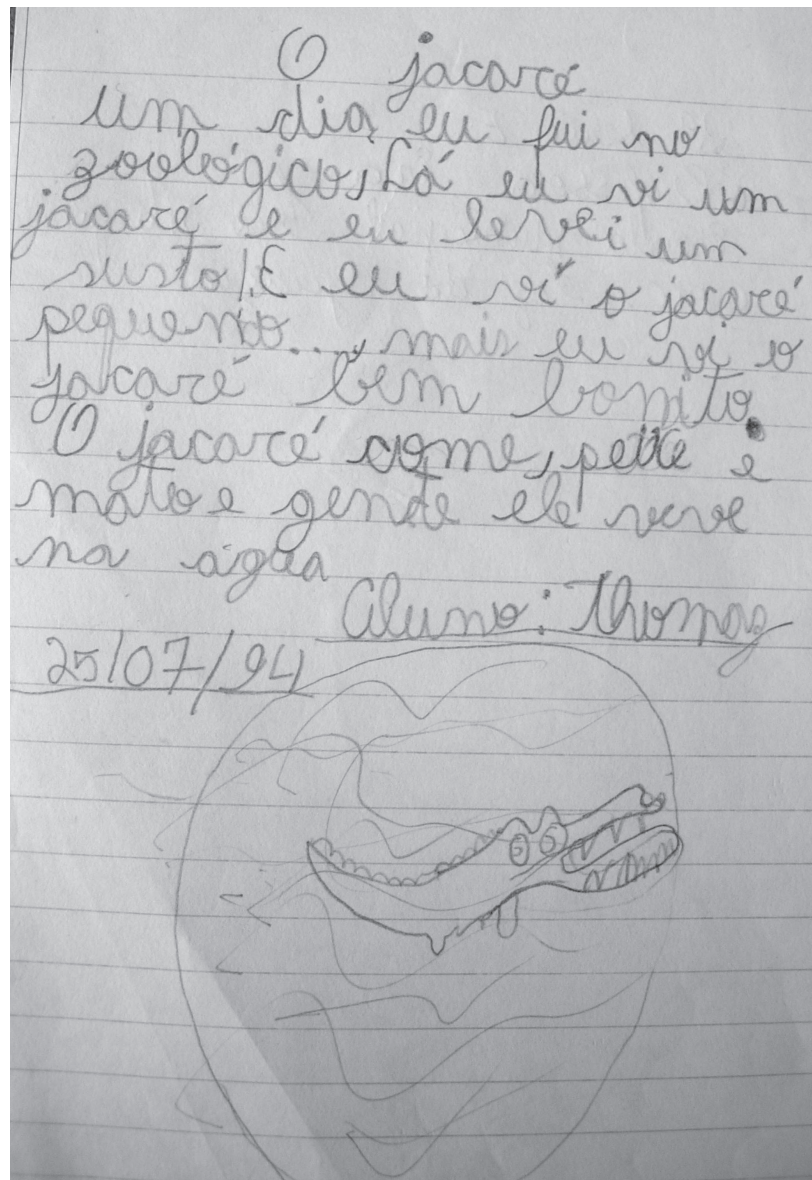 O jacaré
um dia eu fui no
zoológico, Lá eu vi um
jacaré e eu levei um
susto! E eu vi o jacaré
pequeno..., mais eu vi o
jacaré bem bonito.
O jacaré come, peixe e
mato e gende ele veve
na água
Aluno: Thomaz
25/07/94